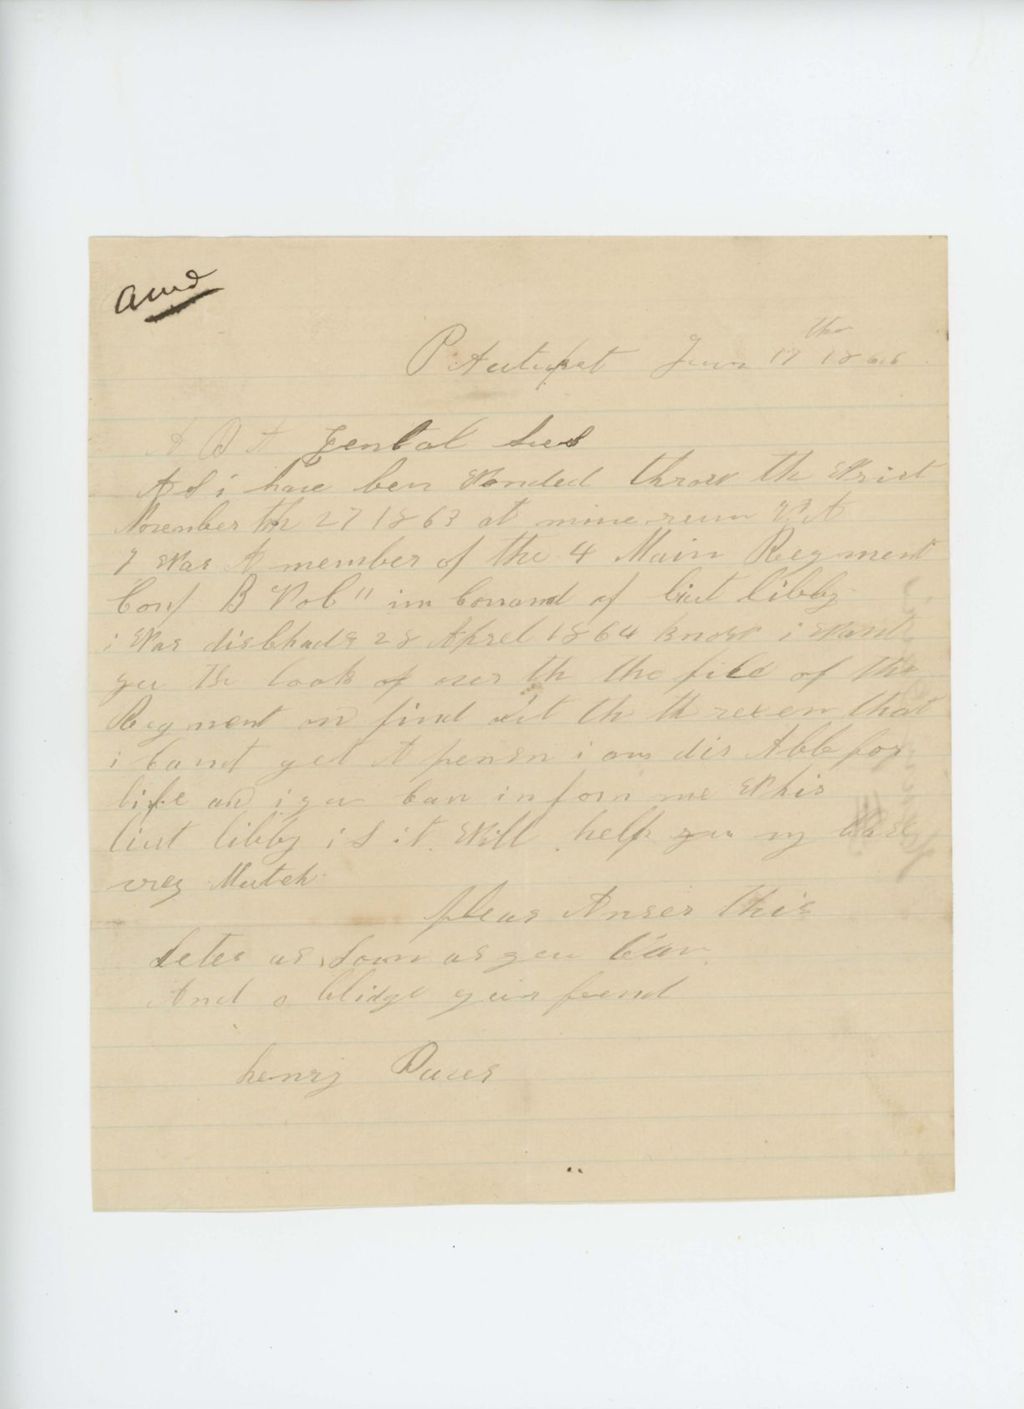 and
PAutuket June 17 th 1866
A D A Genral Sir
As i have ben Wonded throw the Wrist
November th 27 1863 at mine run VA
I Was A member of the 4 Main Regment
Comp B Vol" in Comand of Liut libby
i Was disChadg 28 Aprel 1864 know i Want
you to look of over th the file of the
Regment and find out th th resen that
i Cannt get A pensn i am dis Able for
life and i you Can inforn me Whis
liut libby is it Will help you my
vrey Mutch
pleas Anser this
Leter as Soon as you Can
And oblidge your friend
henry